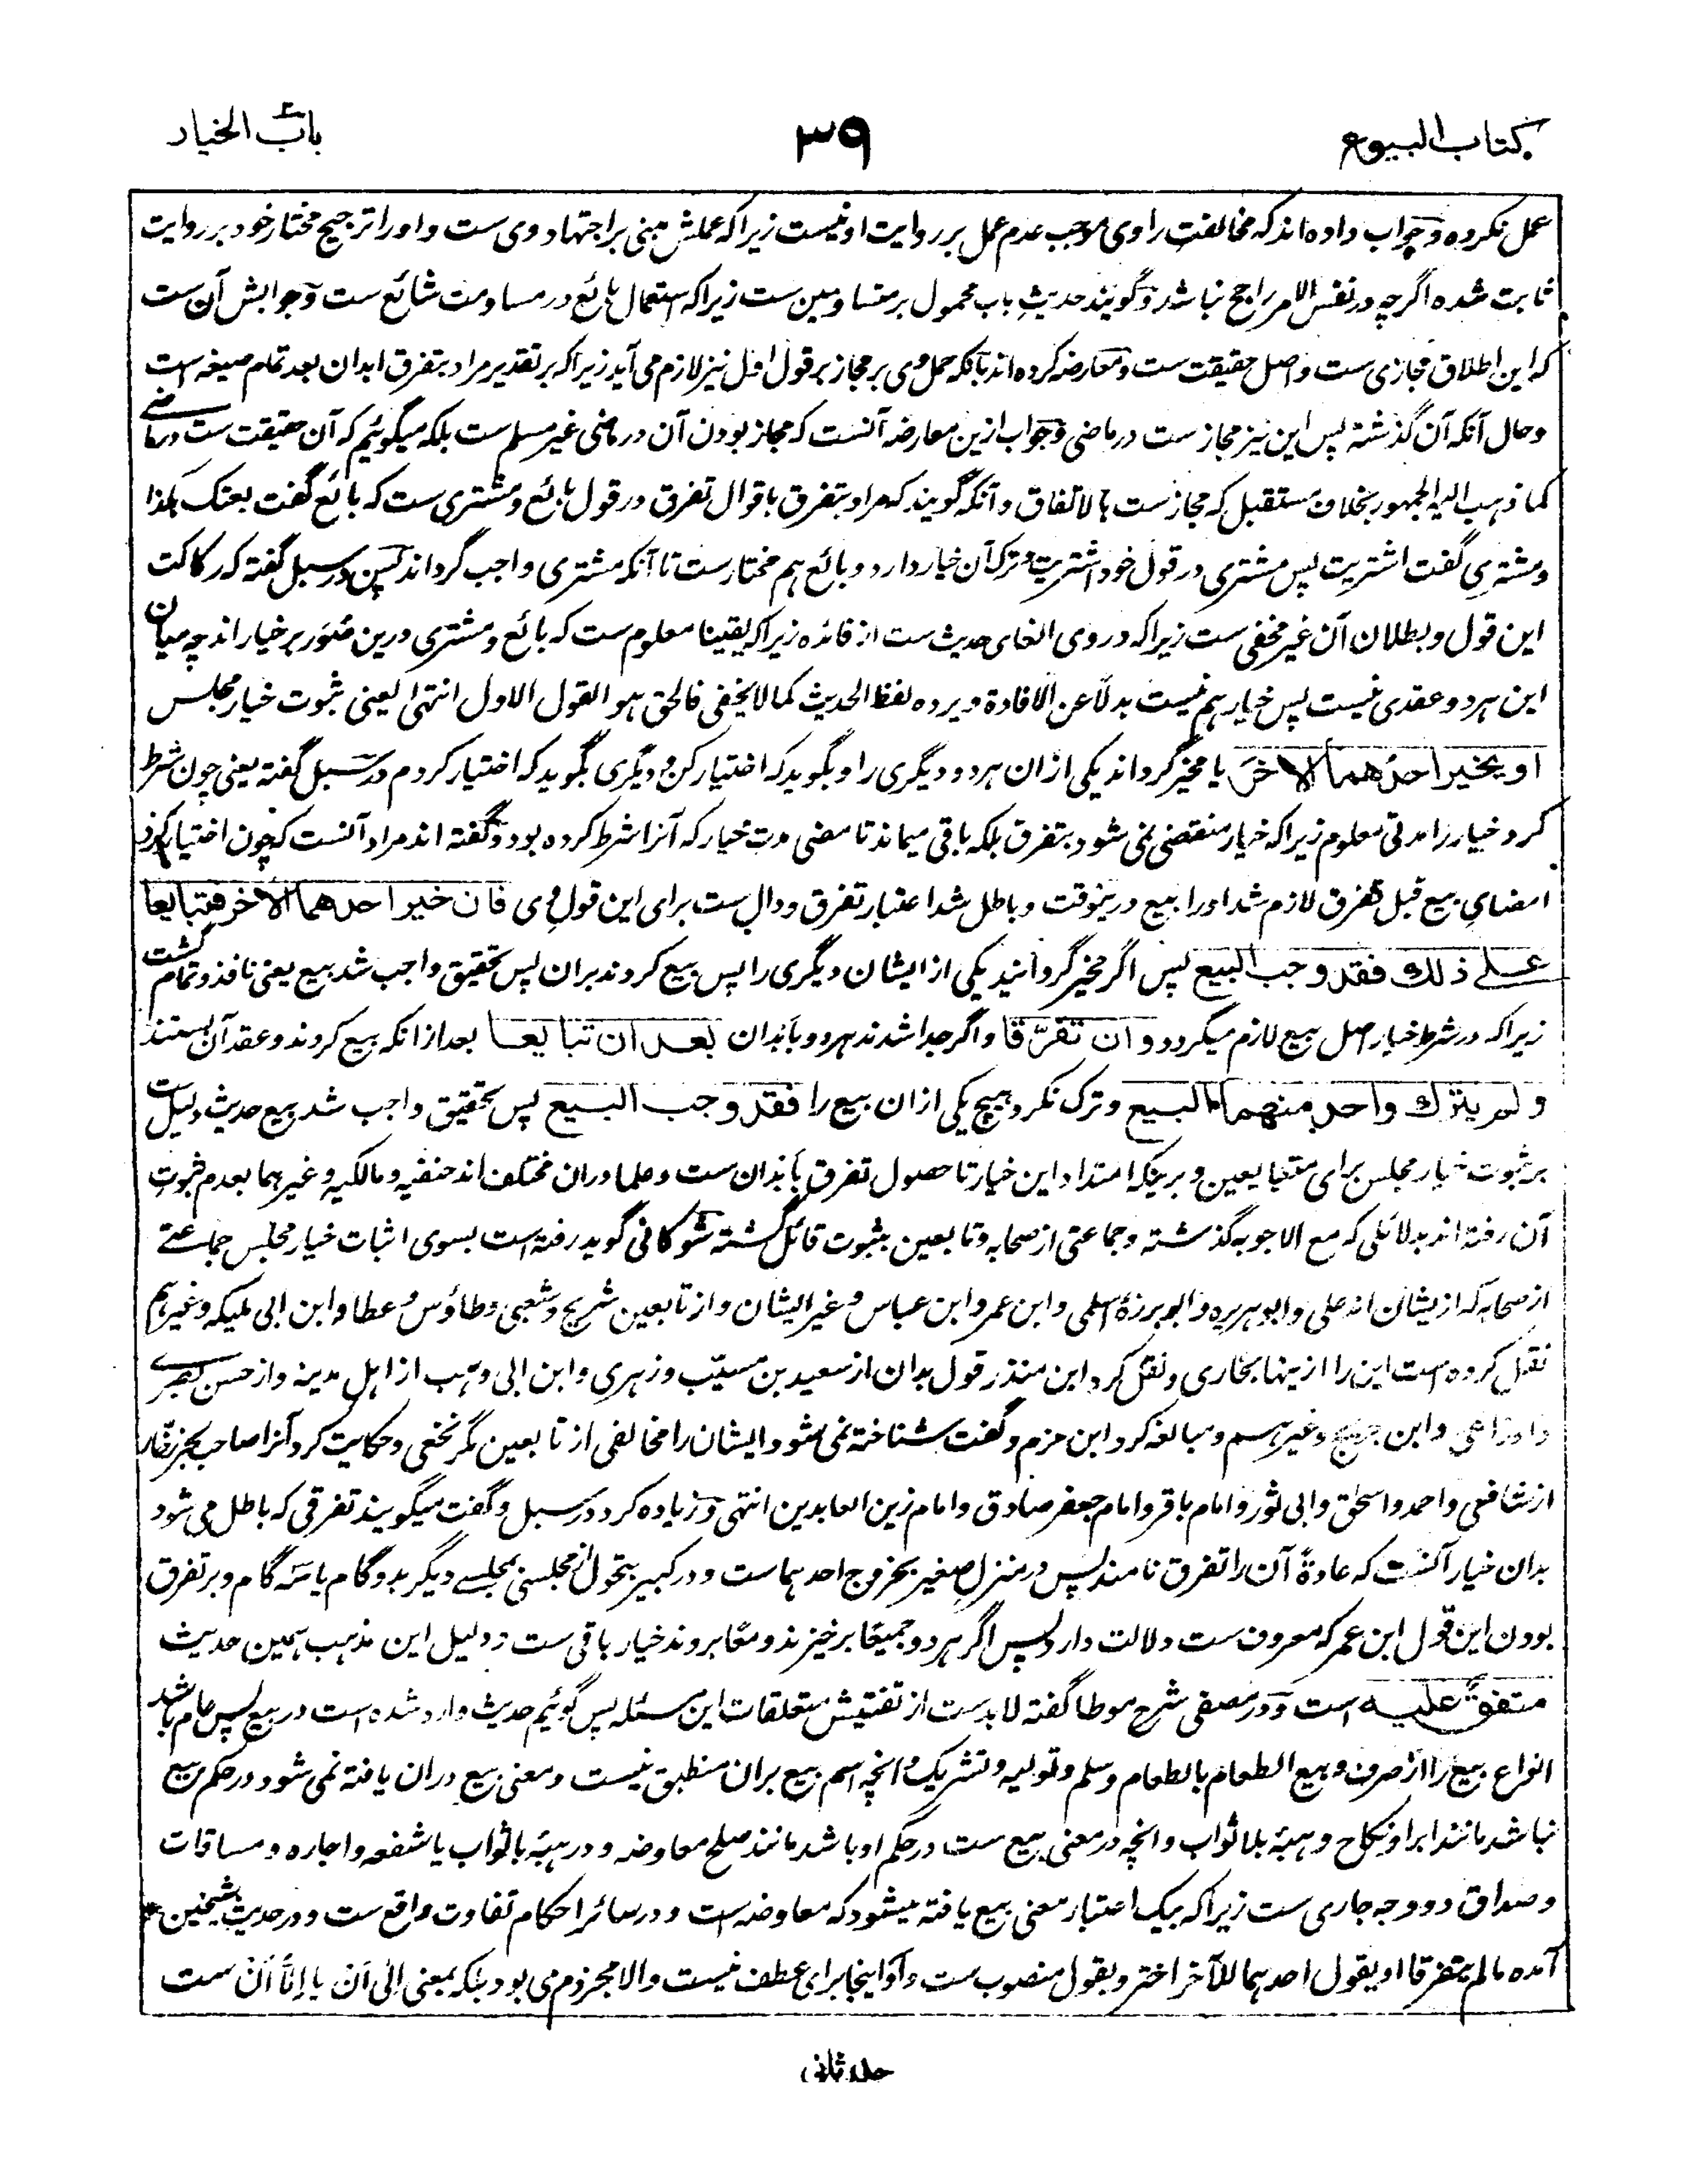 کتاب البیوع
۳۹
باب الخیار
عمل نکرده و جواب داده اند که مخالفت راوی موجب عدم عمل بر روایت او نیست زیرا که عملش مبنی بر اجتهاد وی ست و او را ترجیح مختار خود بر روایت
ثابت شده اگرچه در نفس الامر راجح نباشد و گویند حدیث باب محمول بر متساومین ست زیرا که استعمال بائع در مساومت شائع ست و جوابش آن ست
که این اطلاق مجازی ست و اصل حقیقت ست و معارضه کرده اند بآنکه حمل وی بر مجاز بر قول اول نیز لازم می آید زیرا که بر تقدیر مراد بتفرق ابدان بعد تمام صیغه است
و حال آنکه آن گذشته پس این نیز مجاز ست در ماضی و جواب ازین معارضه آنست که مجاز بودن آن در ماضی غیر مسلم ست بلکه میگوئیم که آن حقیقت ست در ماضی
کما ذهب الیه الجمهور بخلاف مستقبل که مجاز ست بالاتفاق و آنکه گویند که مراد بتفرق باقوال تفرق در قول بائع و مشتری ست که بائع گفت بعتک بکذا
و مشتری گفت اشتریت پس مشتری در قول خود اشتریت و ترک آن خیار دارد و بائع هم مختار ست تا آنکه مشتری واجب گرداند پس در سبل گفته که رکاکت
این قول و بطلان آن غیر مخفی ست زیرا که در وی الغای حدیث ست از فائده زیرا که یقینا معلوم ست که بائع و مشتری درین صور بر خیار اند چه میان
این هر دو عقدی نیست پس خیار هم نیست بدلا عن الافادة و یرده لفظ الحدیث کما لا یخفی فالحق هو القول الاول انتهی یعنی ثبوت خیار مجلس
او یخیر احدهما الاخر یا مخیر گرداند یکی ازان هر دو دیگری را و بگوید که اختیار کن و دیگری بگوید که اختیار کردم در سبل گفته یعنی چون شرط
کرد خیار را مدتی معلوم زیرا که خیار منقضی نمی شود بتفرق بلکه باقی میماند تا مضی مدت خیار که آنرا شرط کرده بود و گفته اند مراد آنست که چون اختیار کرد
امضای بیع قبل تفرق لازم شد او را بیع درینوقت و باطل شد اعتبار تفرق و دال ست برای این قول وی فان خیر احدهما الاخر فتبایعا
علی ذلک فقد وجب البیع پس اگر مخیر گردانید یکی از ایشان دیگری را پس بیع کردند بران پس تحقیق واجب شد بیع یعنی نافذ و تمام گشت
زیرا که در شرط خیار اصل بیع لازم میگردد و ان تفرقا و اگر جدا شدند هر دو بابدان بعد ان تبایعا بعد ازانکه بیع کردند و عقد آن بستند
و لم یترک واحد منهما البیع و ترک نکرد هیچ یکی ازان بیع را فقد وجب البیع پس تحقیق واجب شد بیع حدیث دلیل ست
بر ثبوت خیار مجلس برای متبایعین و برینکه امتداد این خیار تا حصول تفرق بابدان ست و علما دران مختلف اند حنفیه و مالکیه و غیرهما بعدم ثبوت
آن رفته اند بدلائلی که مع الاجوبه گذشته و جماعتی از صحابه و تابعین بثبوت قائل گشته شوکانی گوید رفته است بسوی اثبات خیار مجلس جماعتی
از صحابه که ازیشان اند علی و ابو هریره و ابو برزهٔ اسلمی و ابن عمر و ابن عباس و غیر ایشان و از تابعین شریح و شعبی و طاؤس و عطا و ابن ابی ملیکه و غیرهم
نقل کرده است این را ازینها بخاری و نقل کرد ابن منذر قول بدان از سعید بن مسیّب و زهری و ابن ابی وهب از اهل مدینه و از حسن بصری
و اوزاعی و ابن جریج و غیرهم و مبالغه کرد ابن حزم و گفت شناخته نمی شود ایشان را مخالفی از تابعین مگر نخعی و حکایت کرد آنرا صاحب بحر زخار
از شافعی و احمد و اسحٰق و ابی ثور و امام باقر و امام جعفر صادق و امام زین العابدین انتهی و زیاده کرد در سبل و گفت میگویند تفرقی که باطل می شود
بدان خیار آنست که عادةً آن را تفرق نامند پس در منزل صغیر بخروج احدهما ست و در کبیر بتحول از مجلسی بمجلسے دیگر بدو گام یا سه گام و بر تفرق
بودن این قول ابن عمر که معروف ست دلالت دارد پس اگر هر دو جمیعًا برخیزند و معًا بروند خیار باقی ست و دلیل این مذهب همین حدیث
متفق علیه است و در مصفی شرح موطا گفته لا بدست از تفتیش متعلقات این مسئله پس گوئیم حدیث وارد شده است در بیع پس عام باشد
انواع بیع را از صرف و بیع الطعام بالطعام و سلم و تولیه و تشریک و انچه اسم بیع بران منطبق نیست و معنی بیع دران یافته نمی شود در حکم بیع
نباشد مانند ابرا و نکاح و هبهٔ بلا ثواب و انچه در معنی بیع ست در حکم او باشد مانند صلح معاوضه و در هبهٔ بالثواب یا شفعه و اجاره و مساقات
و صداق دو وجه جاری ست زیرا که بیک اعتبار معنی بیع یافته میشود که معاوضه است و در سائر احکام تفاوت واقع ست و در حدیث شیخین
آمده ما لم یتفرقا او یقول احدهما للآخر اختر و یقول منصوب ست و او اینجا برای عطف نیست و الا مجزوم می بود بلکه بمعنی الی ان یا الا ان ست
جلد ثانی